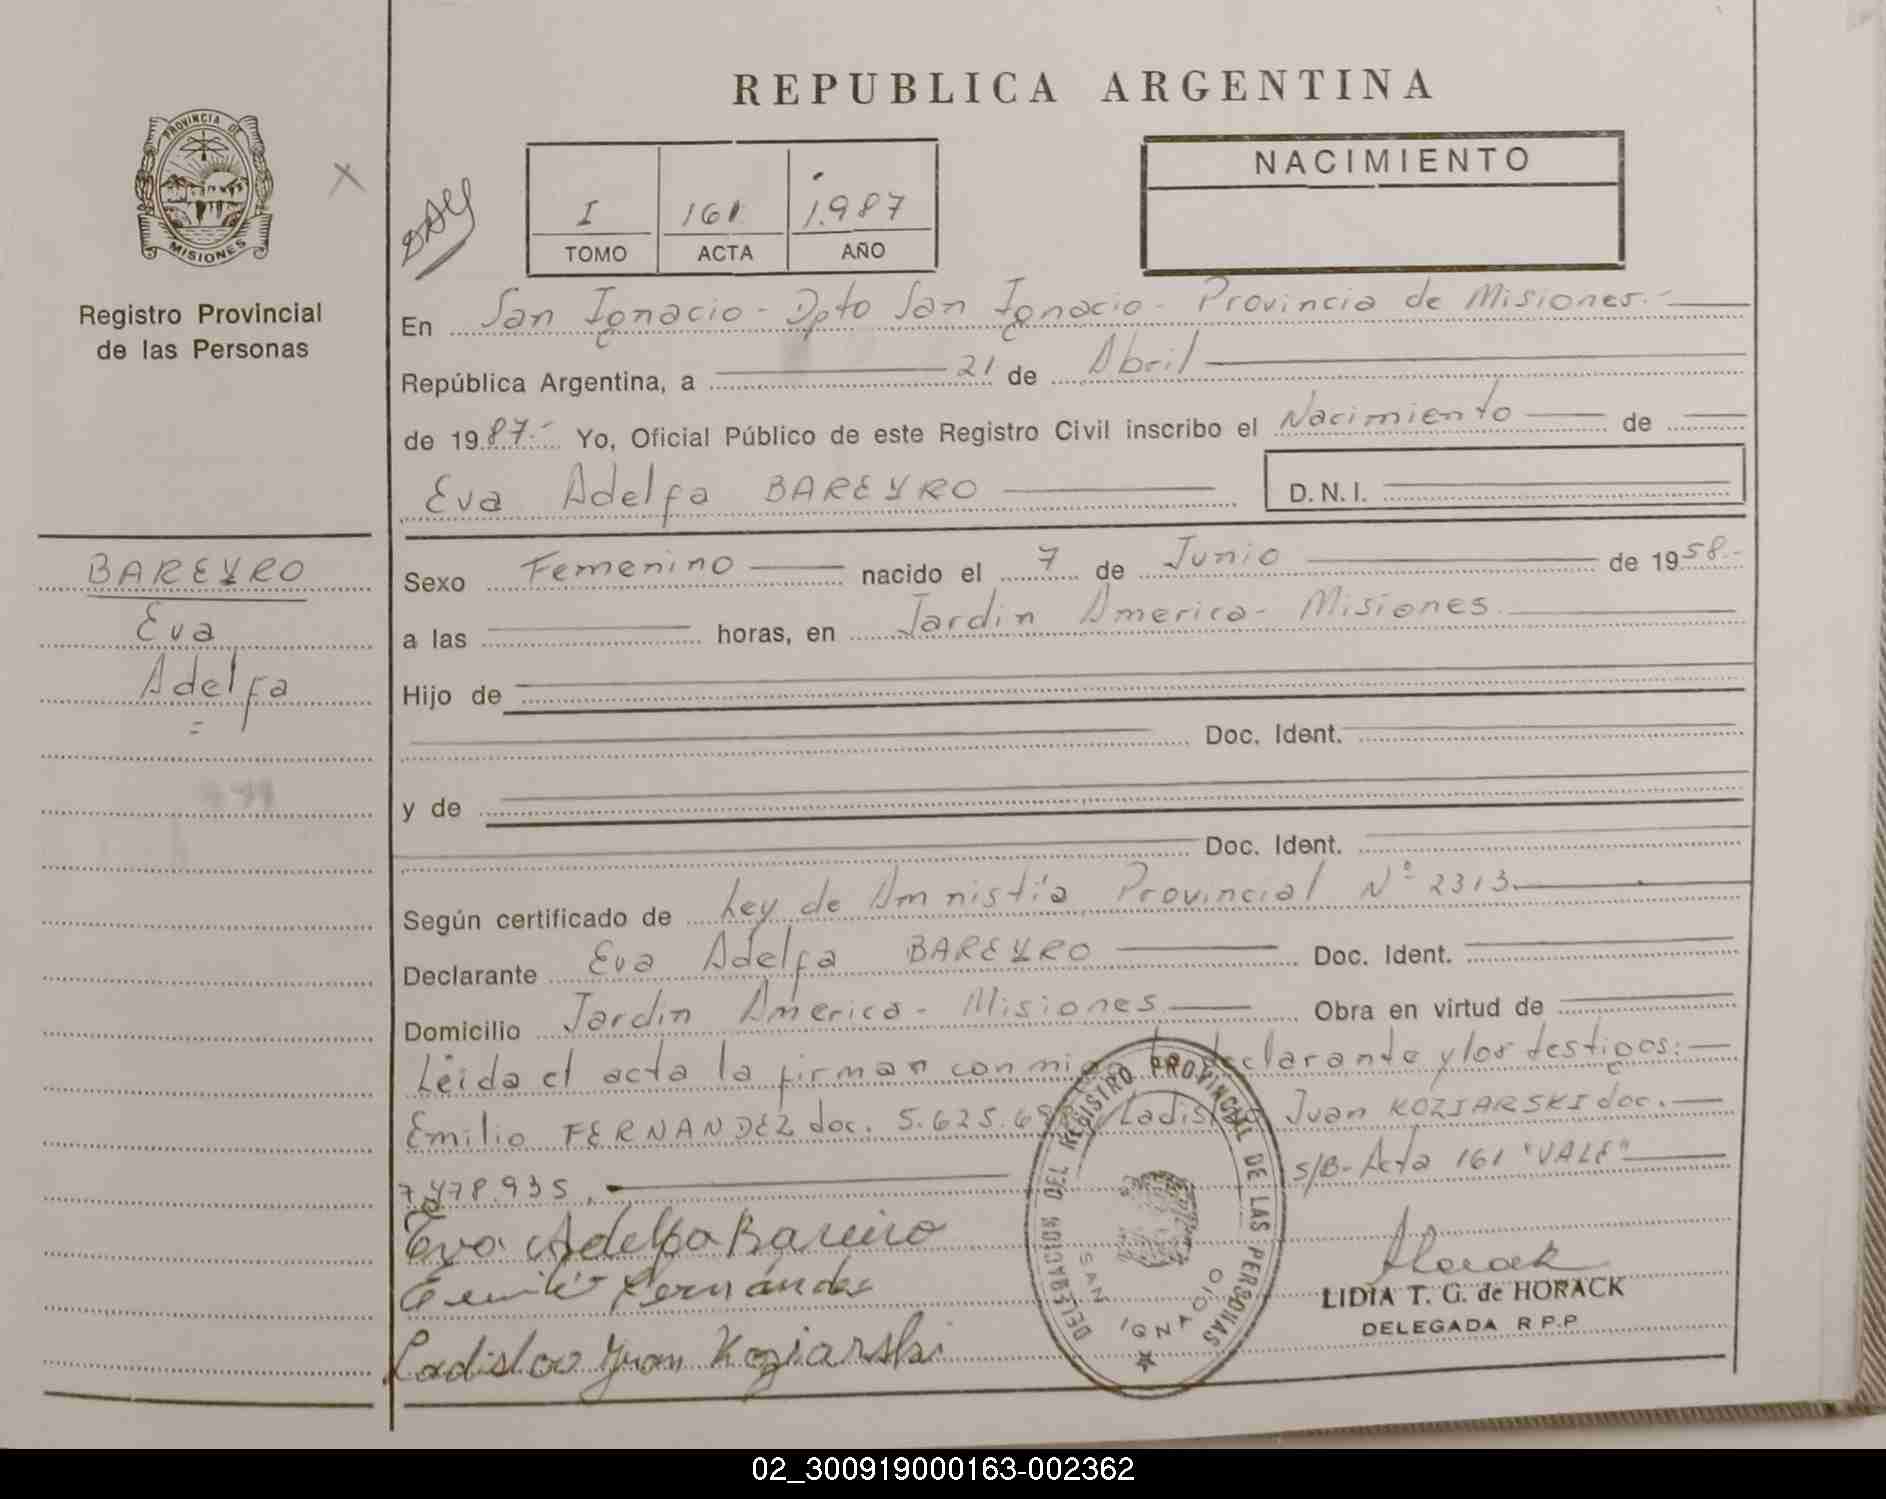 REPUBLICA ARGENTINA
PROVINCIA DE
MISIONES
Registro Provincial
de las Personas
X
I 161 1.987
TOMO ACTA AÑO
NACIMIENTO
En San Ignacio - Dpto San Ignacio - Provincia de Misiones.-
República Argentina, a 21 de Abril
de 1987.- Yo, Oficial Público de este Registro Civil inscribo el Nacimiento de
Eva Adelfa BAREYRO D.N.I.
BAREYRO
Eva
Adelfa
=
Sexo Femenino nacido el 7 de Junio de 1958.-
a las horas, en Jardin America - Misiones.
Hijo de
Doc. Ident.
y de
Doc. Ident.
Según certificado de Ley de Amnistía Provincial Nº 2313.
Declarante Eva Adelfa BAREYRO Doc. Ident.
Domicilio Jardin America - Misiones Obra en virtud de
Leida el acta la firman conmigo declarante y los testigos:
Emilio FERNANDEZ doc. 5.625. Juan KOZIARSKI doc.
7.478.935. S/B- Acta 161 "VALE"
Eva Adelfa Bareiro
Emilio Fernández
Ladislao Juan Koziarski
DELEGACION DEL REGISTRO PROVINCIAL DE LAS PERSONAS
SAN IGNACIO
Horack
LIDIA T. G. de HORACK
DELEGADA R.P.P.
02_300919000163-002362